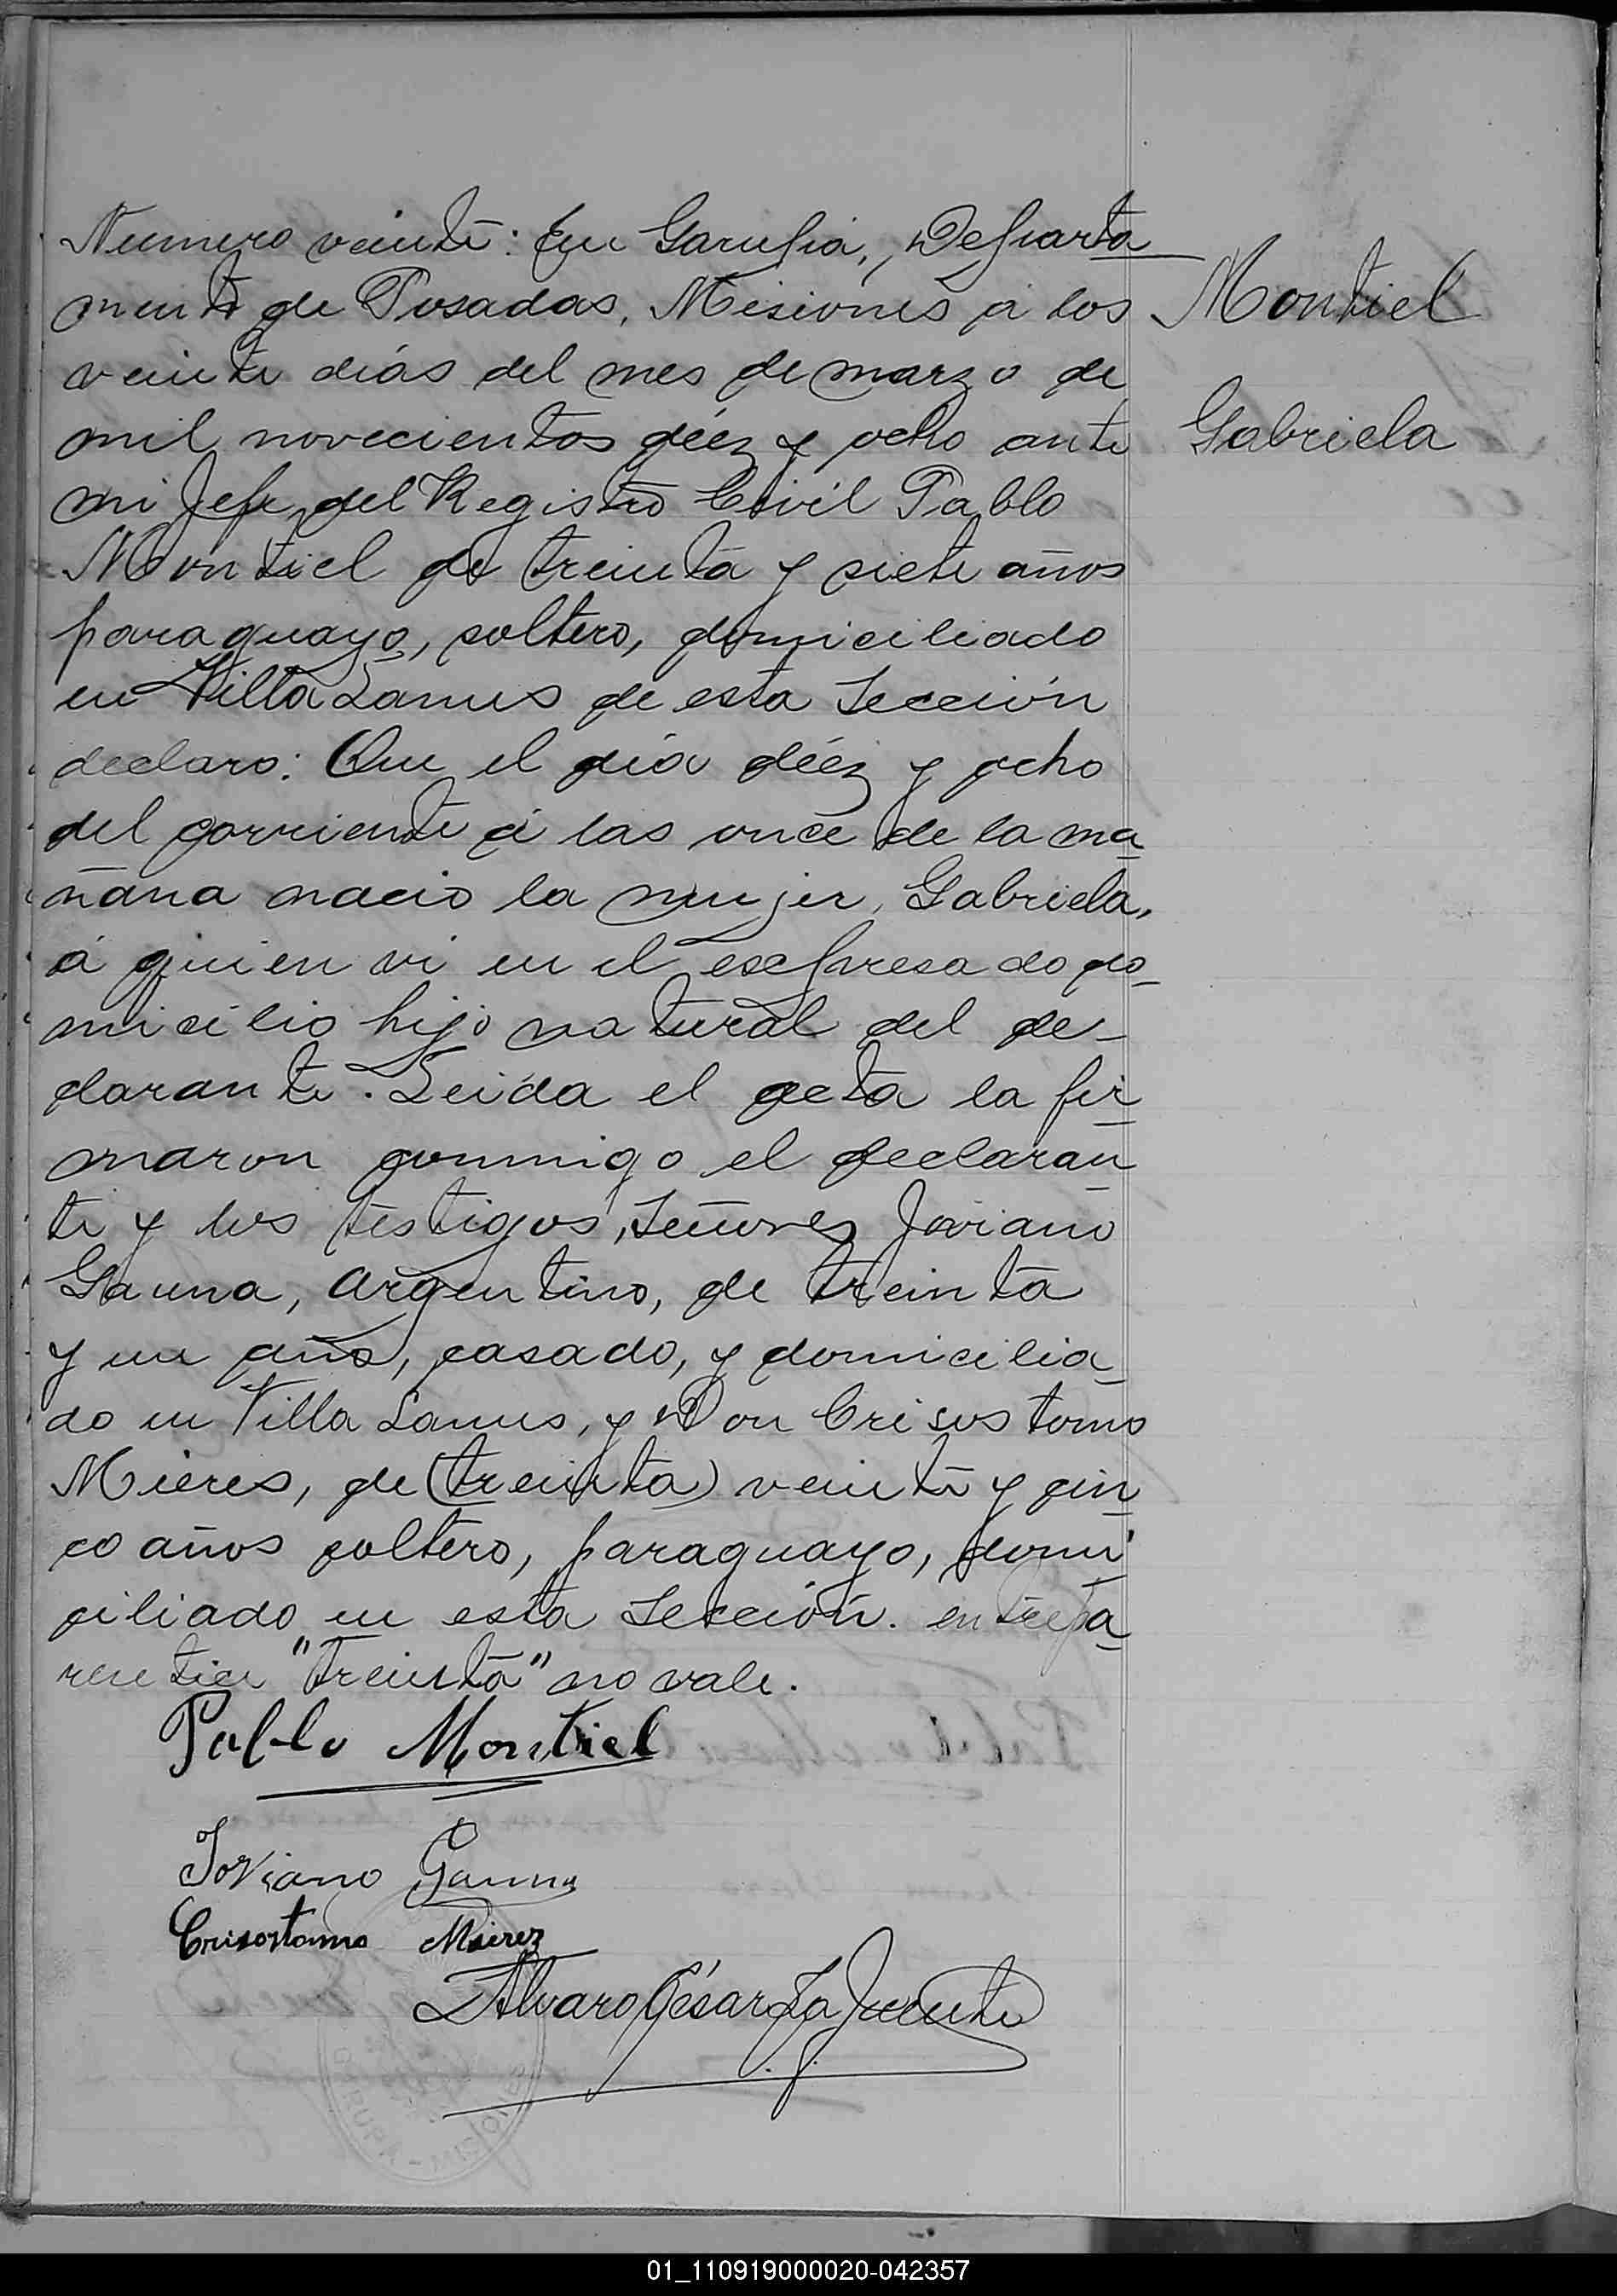 Numero veinte: En Garupá, Departa
mento de Posadas, Misiones á los
veinte diás del mes de marzo de
mil novecientos diéz y ocho ante
mi Jefe del Registro Civil Pablo
Montiel de treinta y siete años
paraguayo, soltero, domiciliado
en Villa Lanus de esta Sección
declaro: Que el diá diéz y ocho
del corriente á las once de la ma
ñana nacio la mujer, Gabriela,
á quien vi en el expresado do
micilio hijo natural del de-
clarante. Leída el acta la fir
maron conmigo el declaran
te y los testigos, Señores Joviano
Gauna, argentino, de treinta
y un año, casado, y domicilia
do en Villa Lanus, y Don Crisostomo
Mieres, de (treinta) veinte y cin
co años soltero, paraguayo, domi
ciliado en esta Sección. entrepa
rentier "treinta" no vale.
Pablo Montiel
Joviano Gauna
Crisostomo Mierez
Alvaro César La
Montiel
Gabriela
GARUPA - MISIONES
01_110919000020-042357